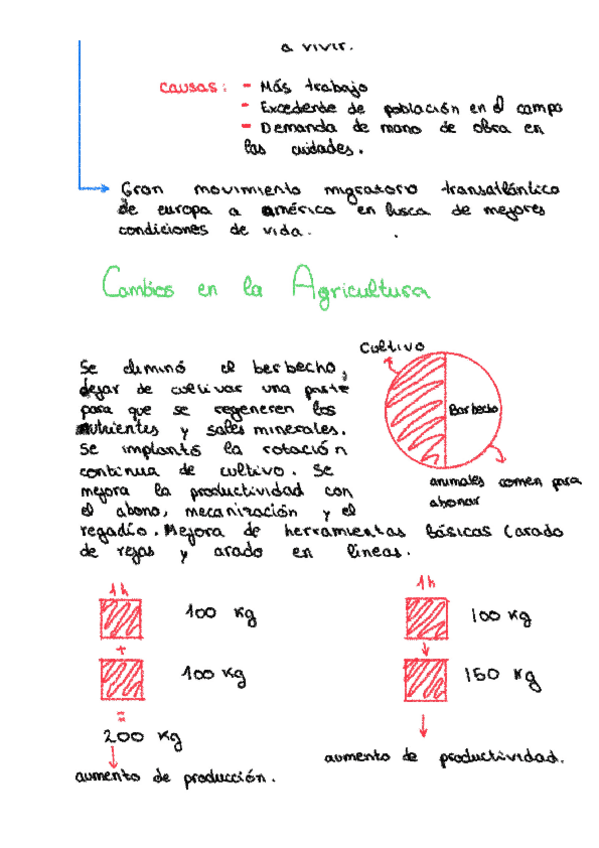 a vivir.
causas: - Más trabajo
- Excedente de población en el campo
- Demanda de mano de obra en
las cuidades.
Gran movimiento migratorio transatlántico
de europa a américa en busca de mejores
condiciones de vida.
Cambios en la Agricultura
Cultivo
Se eliminó el berbecho,
dejar de cultivar una parte
para que se regeneren los
nutrientes y sales minerales.
Se implantó la rotación
continua de cultivo. Se
mejora la productividad con
el abono, mecanización y el
regadío. Mejora de herramientas básicas (arado
de rejas y arado en líneas.
Barbecho
animales comen para
abonar
1h
100 kg
+
100 kg
=
200 kg
aumento de producción.
1h
100 kg
150 kg
aumento de productividad.